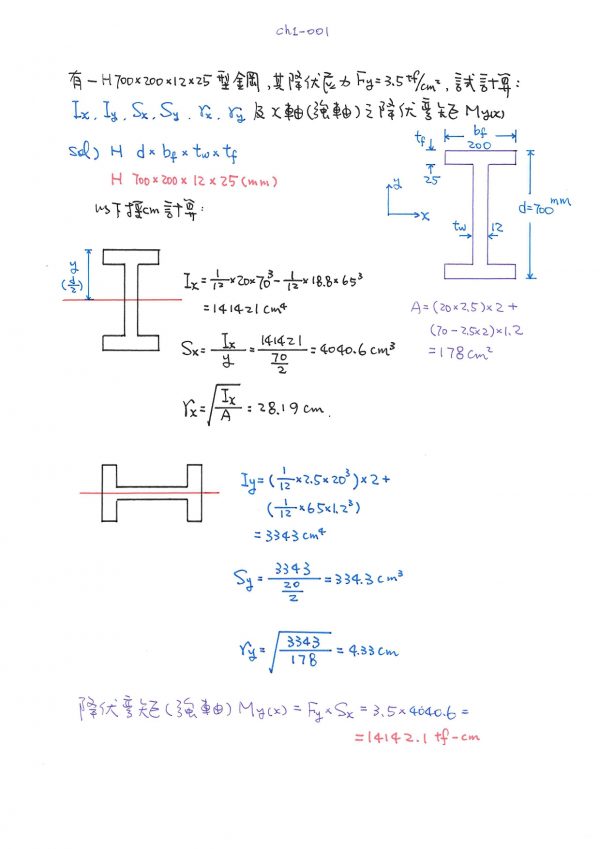 ch1-001
有一H700×200×12×25型鋼,其降伏應力Fy=3.5tf/cm²,試計算:
Ix、Iy、Sx、Sy、rx、ry及X軸(強軸)之降伏彎矩My(x)
sol) H d×bf×tw×tf
H 700×200×12×25(mm)
以下採cm計算:
tf
bf
200
25
y
x
tw
12
d=700mm
A=(20×2.5)×2+
(70-2.5×2)×1.2
=178cm²
y
(d/2)
Ix=1/12×20×70³-1/12×18.8×65³
=141421cm⁴
Sx=Ix/y=141421/(70/2)=4040.6cm³
rx=√(Ix/A)=28.19cm.
Iy=(1/12×2.5×20³)×2+
(1/12×65×1.2³)
=3343cm⁴
Sy=3343/(20/2)=334.3cm³
ry=√(3343/178)=4.33cm
降伏彎矩(強軸)My(x)=Fy×Sx=3.5×4040.6=
=14142.1 tf-cm